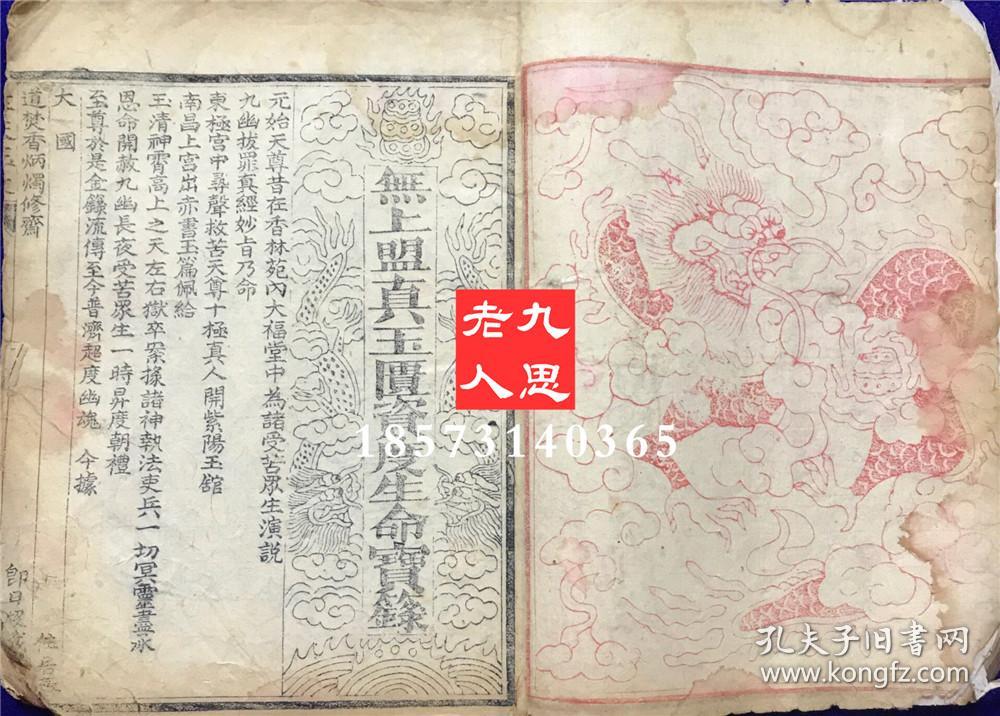 無上盟真玉匱資度生命寶籙
元始天尊昔在香林苑內大福堂中為諸受苦眾生演説
九幽拔罪真經妙旨乃命
東極宮中尋聲救苦天尊十極真人開紫陽玉舘
南昌上宮出赤書玉篇佩給
玉清神霄高上之天左右獄卒案掾諸神執法吏兵一切冥靈盡承
恩命開赦九幽長夜受苦眾生一時昇度朝禮
至尊於是金籙流傳至今普濟超度幽魂 今據
大 國
道焚香炳燭修齋
即日
九思
老人
18573140365
孔夫子旧書网
www.kongfz.com